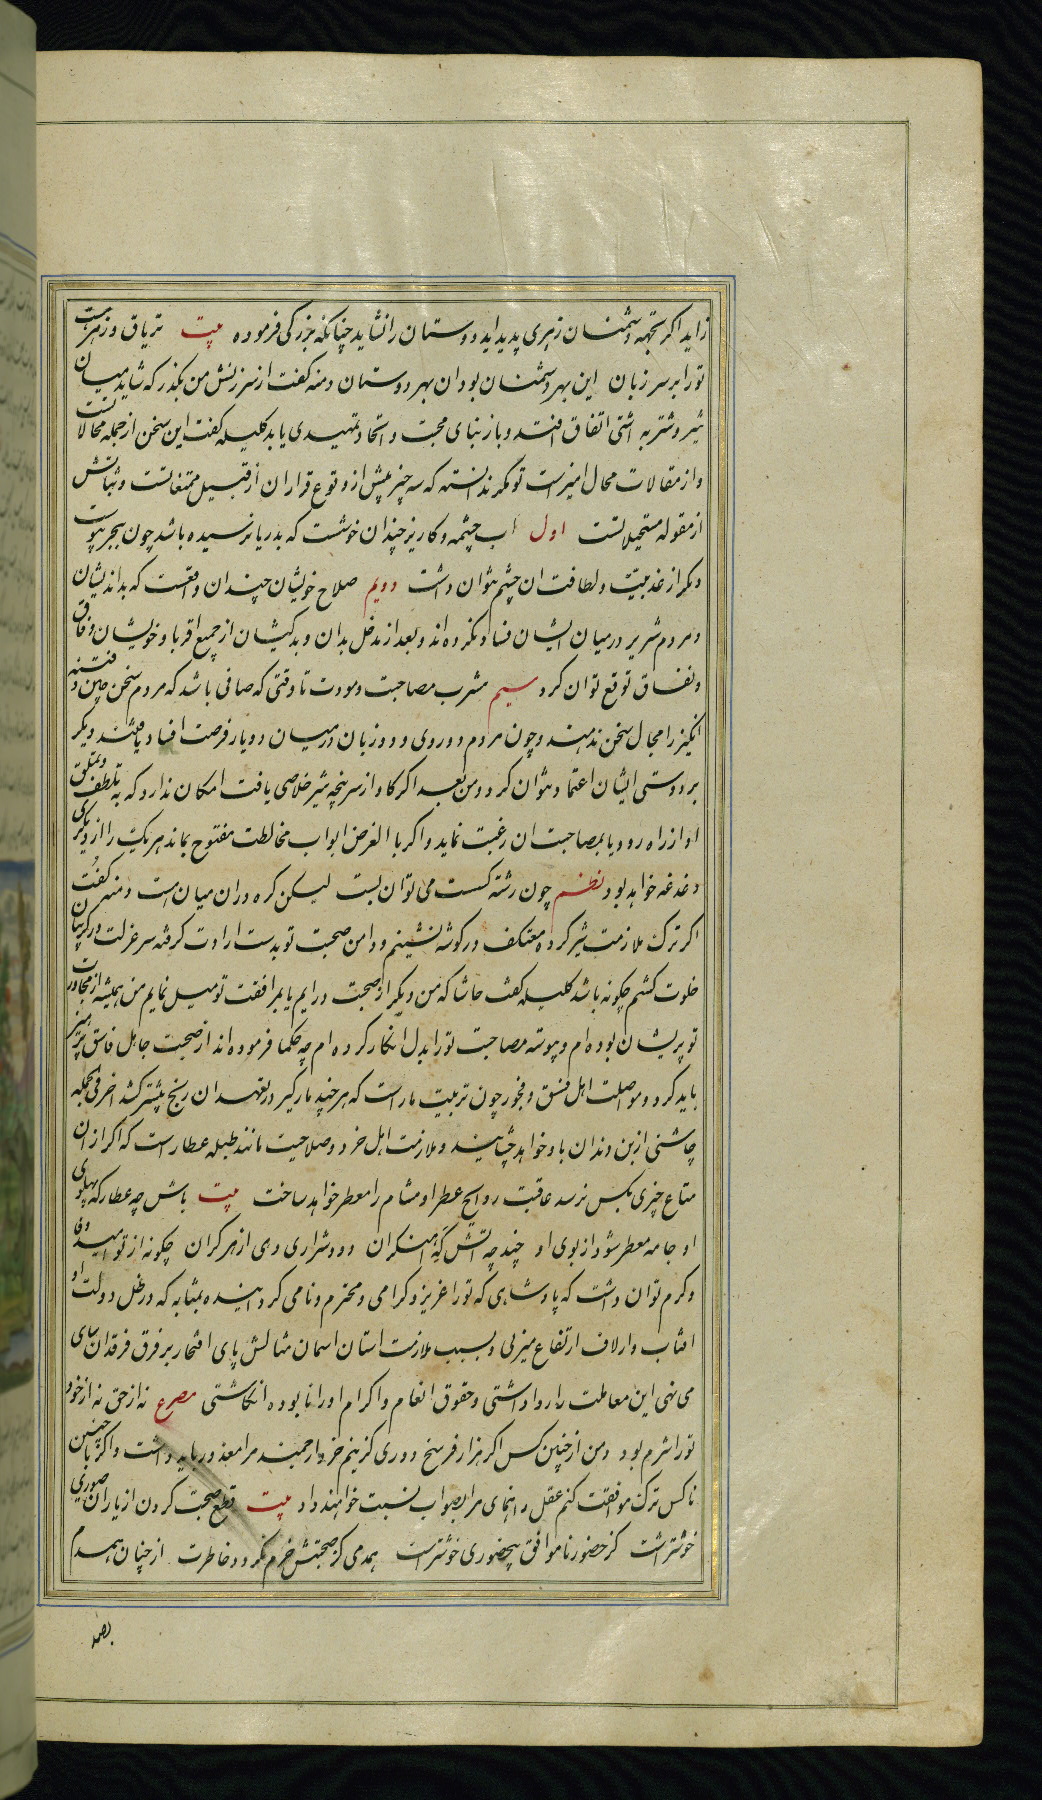 زاید اکر بجهه دشمنان زهری پدید اید دوستان را نشاید چنانکه بزرکی فرموده بیت تریاق و زهر هست
تو را بر سر زبان این بهر دشمنان بود ان بهر دوستان دمنه کفت از سرزنش من بکذر که شاید میان
شیر و شتربه اشتی اتفاق افتد و باز بنای محبت و اتحاد تمهیدی یابد کلیله کفت این سخن از جمله محالاتست
و از مقالات محال امیزست تو مکر ندانسته که سه چیز پیش از وقوع قرار ان از قبیل ممتنعاتست و ثباتش
از مقوله مستحیلاتست اول اب چشمه و کاریز چندان خوشست که بدریا نرسیده باشد چون ببحر پیوست
دیکر از عذوبیت و لطافت ان چشم نتوان داشت دویم صلاح خویشان چندان واقعست که بداندیشان
و مردم شریر در میان ایشان فساد نکرده اند و بعد از مدخل بدان و بدکیشان از جمیع اقربا و خویشان وفاق
و نفاق توقع توان کرد سیم مشرب مصاحبت و مودت تا وقتی که صافی باشد که مردم سخن چین و فتنه
انکیز را مجال سخن ندهند و چون مردم دوروی و دوزبان در میان دو یار فرصت افساد یافتند دیکر
بر دوستی ایشان اعتماد نتوان کرد و من بعد اکر کاو از سرپنجه شیر خلاصی یافت امکان ندارد که به تلطف و تملق
او از راه رود یا بمصاحبت ان رغبت نماید و اکر بالفرض ابواب مخالطت مفتوح بماند هر یک را از دیکری
دغدغه خواهد بود نظم چون رشته کسست می توان بست لیکن کره دران میان است دمنه کفت
اکر ترک ملازمت شیر کرده معتکف در کوشه نشینم و دامن صحبت تو بدست ارادت کرفته سر عزلت در کریبان
خلوت کشم چکونه باشد کلیله کفت حاشا که من دیکر از صحبت درایم یا بمرافقت تو میل نمایم من همیشه از مجاورت
تو پریشان بوده ام و پیوسته مصاحبت تو را بدل انکار کرده ام چه حکما فرموده اند از صحبت جاهل فاسق پرهیز
باید کرد و مواصلت اهل فسق و فجور چون تربیت مارست که هر چند مارکیر در تعهد ان رنج بیشتر کشد اخر فی الجمله
چاشنی از بن دندان باو خواهد چشانید و ملازمت اهل خرد و صلاحیت مانند طبله عطارست که اکر از ان
متاع چیزی بکس نرسد عاقبت روایح عطر او مشام را معطر خواهد ساخت بیت باش چو عطار که پهلوی
او جامه معطر شود از بوی او چند چو اتش که اهنکران دود و شراری دهی از هر کران چکونه از تو امید وفا
و کرم توان داشت که پادشاهی که تو را عزیز و کرامی و محترم و نامی کردانیده بمثابه که در ظل دولت او
افتاب وار لاف ارتفاع میزنی و بسبب ملازمت استان اسمان مثالش پای افتخار بر فرق فرقدان سای
می نهی این معاملت را روا داشتی و حقوق انعام و اکرام او را نابوده انکاشتی مصرع نه از حق نه از خود
تو را شرم بود و من از چنین کس اکر هزار فرسخ دوری کزینم خرد ارجمند مرا معذور باید داشت و اکر با چنین
ناکس ترک موافقت کنم عقل راهنمای مرا بصواب نسبت خواهند داد بیت قطع صحبت کردن از یاران صوری
خوشترست کز حضور ناموافق بیحضوری خوشترست همدمی کز صحبتش خرم نکردد خاطرت از چنان همدم
بصد